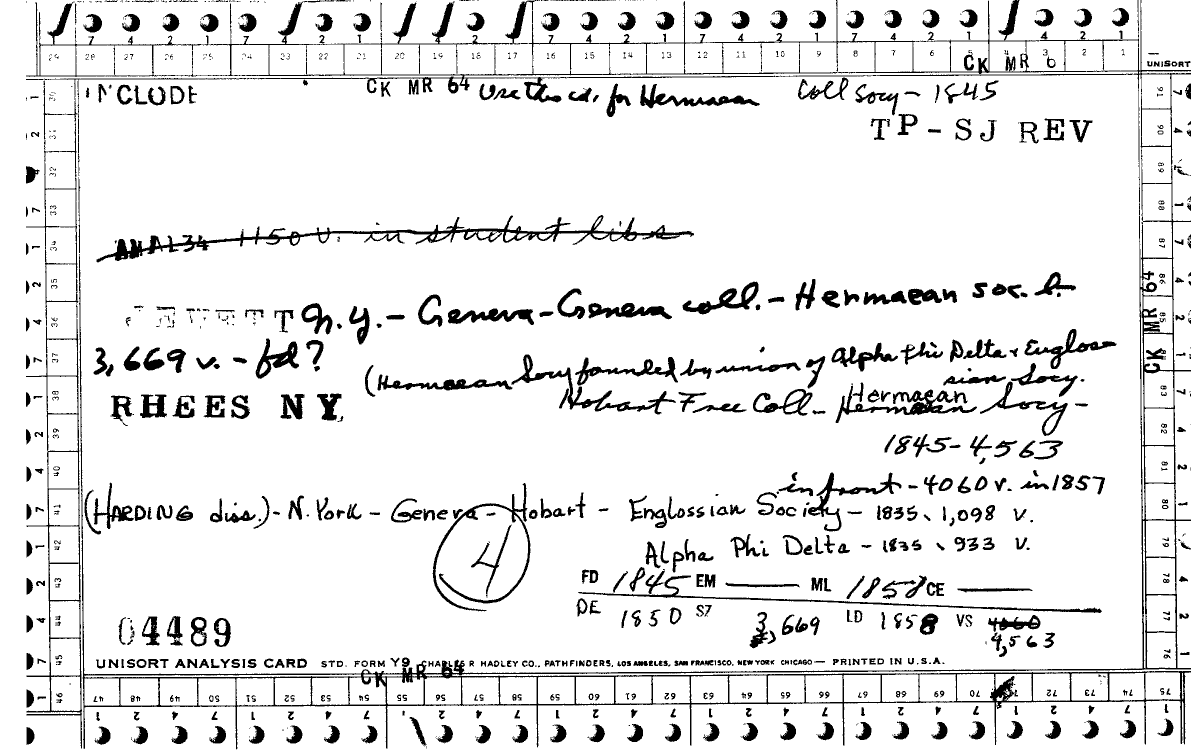 7 4 2 1 7 4 2 1 7 4 2 1 7 4 2 1 7 4 2 1 7 4 2 1 7 4 2 1
29 28 27 26 25 24 23 22 21 20 19 18 17 16 15 14 13 12 11 10 9 8 7 6 5 4 3 2 1
CK MR 6
UNISORT
INCLUDE
CK MR 64 Use this cd. for Hermaean Coll Socy - 1845
TP-SJ REV
AMAL34 1150 v. in student libs
JEWETT N.Y. - Geneva - Geneva coll. - Hermaean soc. l.
3,669 v. - fd?
(Hermaean Socy founded by union of Alpha Phi Delta & Euglossian Socy.
RHEES NY
Hobart Free Coll - Hermaean Socy -
Hermaean
1845 - 4,563
in front - 4060 v. in 1857
(HARDING diss.) - N. York - Geneva - Hobart - Englossian Society - 1835, 1,098 v.
Alpha Phi Delta - 1835, 933 v.
4
FD 1845 EM — ML 1858 CE —
DE 1850 SZ 3,669 LD 1858 VS 4060
4,563
04489
UNISORT ANALYSIS CARD STD. FORM Y9 CHARLES R HADLEY CO., PATHFINDERS, LOS ANGELES, SAN FRANCISCO, NEW YORK CHICAGO — PRINTED IN U.S.A.
CK MR 64
CK MR 64
46 47 48 49 50 51 52 53 54 55 56 57 58 59 60 61 62 63 64 65 66 67 68 69 70 71 72 73 74 75